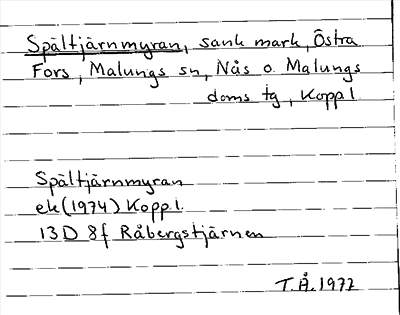 Spältjärnmyran, sank mark, Östra
Fors, Malungs sn, Nås o. Malungs
doms tg, Koppl
Spältjärnmyran
ek (1974) Koppl.
13 D 8f Råbergstjärnen
T.Å. 1977